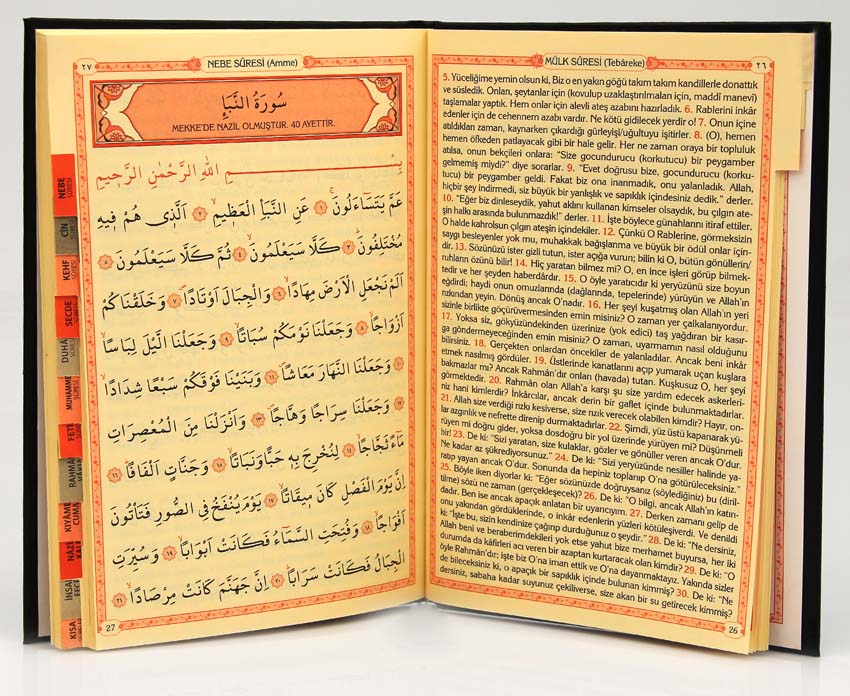 MÜLK SÛRESİ (Tebâreke)
٢٦
5. Yüceliğime yemin olsun ki, Biz o en yakın göğü takım takım kandillerle donattık
ve süsledik. Onları, şeytanlar için (kovulup uzaklaştırılmaları için, maddî manevî)
taşlamalar yaptık. Hem onlar için alevli ateş azabını hazırladık. 6. Rablerini inkâr
edenler için de cehennem azabı vardır. Ne kötü gidilecek yerdir o! 7. Onun içine
atıldıkları zaman, kaynarken çıkardığı gürleyişi/uğultuyu işitirler. 8. (O), hemen
hemen öfkeden patlayacak gibi bir hale gelir. Her ne zaman oraya bir topluluk
atılsa, onun bekçileri onlara: "Size gocundurucu (korkutucu) bir peygamber
gelmemiş miydi?" diye sorarlar. 9. "Evet doğrusu bize, gocundurucu (korku-
tucu) bir peygamber geldi. Fakat biz ona inanmadık, onu yalanladık. Allah,
hiçbir şey indirmedi, siz büyük bir yanlışlık ve sapıklık içindesiniz dedik." derler.
10. "Eğer biz dinleseydik, yahut aklını kullanan kimseler olsaydık, bu çılgın ate-
şin halkı arasında bulunmazdık!" derler. 11. İşte böylece günahlarını itiraf ettiler.
O halde kahrolsun çılgın ateşin içindekiler. 12. Çünkü O Rablerine, görmeksizin
saygı besleyenler yok mu, muhakkak bağışlanma ve büyük bir ödül onlar için-
dir. 13. Sözünüzü ister gizli tutun, ister açığa vurun; bilin ki O, bütün gönüllerin/
ruhların özünü bilir! 14. Hiç yaratan bilmez mi? O, en ince işleri görüp bilmek-
tedir ve her şeyden haberdârdır. 15. O öyle yaratıcıdır ki yeryüzünü size boyun
eğdirdi; haydi onun omuzlarında (dağlarında, tepelerinde) yürüyün ve Allah'ın
rızkından yeyin. Dönüş ancak O'nadır. 16. Her şeyi kuşatmış olan Allah'ın yeri
sizinle birlikte göçürüvermesinden emin misiniz? O zaman yer çalkalanıyordur.
17. Yoksa siz, gökyüzündekinden üzerinize (yok edici) taş yağdıran bir kasır-
ga göndermeyeceğinden emin misiniz? O zaman, uyarmamın nasıl olduğunu
bilirsiniz. 18. Gerçekten onlardan öncekiler de yalanladılar. Ancak beni inkâr
etmek nasılmış gördüler. 19. Üstlerinde kanatlarını açıp yumarak uçan kuşlara
bakmazlar mı? Ancak Rahmân'dır onları (havada) tutan. Kuşkusuz O, her şeyi
görmektedir. 20. Rahmân olan Allah'a karşı şu size yardım edecek askerleri-
niz hani kimlerdir? İnkârcılar, ancak derin bir gaflet içinde bulunmaktadırlar.
21. Allah size verdiği rızkı kesiverse, size rızık verecek olabilen kimdir? Hayır, on-
lar azgınlık ve nefrette direnip durmaktadırlar. 22. Şimdi, yüz üstü kapanarak yü-
rüyen mi doğru gider, yoksa dosdoğru bir yol üzerinde yürüyen mi? Düşünmeli
bir! 23. De ki: "Sizi yaratan, size kulaklar, gözler ve gönüller veren ancak O'dur.
Ne kadar az şükrediyorsunuz." 24. De ki: "Sizi yeryüzünde nesiller halinde ya-
ratıp yayan ancak O'dur. Sonunda da hepiniz toplanıp O'na götürüleceksiniz."
25. Böyle iken diyorlar ki: "Eğer sözünüzde doğruysanız (söylediğiniz) bu (diril-
tilme) sözü ne zaman (gerçekleşecek)?" 26. De ki: "O bilgi, ancak Allah'ın katın-
dadır. Ben ise ancak apaçık anlatan bir uyarıcıyım. 27. Derken zamanı gelip de
onu yakından gördüklerinde, o inkâr edenlerin yüzleri kötüleşiverdi. Ve denildi
ki: "İşte bu, sizin kendinizce çağırıp durduğunuz o şeydir." 28. De ki: "Ne dersiniz,
Allah beni ve beraberimdekileri yok etse yahut bize merhamet buyursa, her iki
durumda da kâfirleri acı veren bir azaptan kurtaracak olan kimdir? 29. De ki: "O
öyle Rahmân'dır; işte biz O'na iman ettik ve O'na dayanmaktayız. Yakında sizler
de bileceksiniz ki, o apaçık bir sapıklık içinde bulunan kimmiş? 30. De ki: "Ne
dersiniz, sabaha kadar suyunuz çekiliverse, size akan bir su getirecek kimmiş?
26
٢٧
NEBE SÛRESİ (Amme)
سُورَةُ النَّبَأِ
MEKKE'DE NAZİL OLMUŞTUR. 40 AYETTİR.
بِسْــــــمِ اللهِ الرَّحْمٰنِ الرَّحِيمِ
عَمَّ يَتَسَاءَلُونَ ﴿١﴾ عَنِ النَّبَأِ الْعَظِيمِ ﴿٢﴾ اَلَّذِى هُمْ فِيهِ
مُخْتَلِفُونَ ﴿٣﴾ كَلَّا سَيَعْلَمُونَ ﴿٤﴾ ثُمَّ كَلَّا سَيَعْلَمُونَ ﴿٥﴾
اَلَمْ نَجْعَلِ الْاَرْضَ مِهَادًا ﴿٦﴾ وَالْجِبَالَ اَوْتَادًا ﴿٧﴾ وَخَلَقْنَاكُمْ
اَزْوَاجًا ﴿٨﴾ وَجَعَلْنَا نَوْمَكُمْ سُبَاتًا ﴿٩﴾ وَجَعَلْنَا الَّيْلَ لِبَاسًا
﴿١٠﴾ وَجَعَلْنَا النَّهَارَ مَعَاشًا ﴿١١﴾ وَبَنَيْنَا فَوْقَكُمْ سَبْعًا شِدَادًا
﴿١٢﴾ وَجَعَلْنَا سِرَاجًا وَهَّاجًا ﴿١٣﴾ وَاَنْزَلْنَا مِنَ الْمُعْصِرَاتِ
مَاءً ثَجَّاجًا ﴿١٤﴾ لِنُخْرِجَ بِهِ حَبًّا وَنَبَاتًا ﴿١٥﴾ وَجَنَّاتٍ اَلْفَافًا ﴿١٦﴾
اِنَّ يَوْمَ الْفَصْلِ كَانَ مِيقَاتًا ﴿١٧﴾ يَوْمَ يُنْفَخُ فِى الصُّورِ فَتَأْتُونَ
اَفْوَاجًا ﴿١٨﴾ وَفُتِحَتِ السَّمَاءُ فَكَانَتْ اَبْوَابًا ﴿١٩﴾ وَسُيِّرَتِ
الْجِبَالُ فَكَانَتْ سَرَابًا ﴿٢٠﴾ اِنَّ جَهَنَّمَ كَانَتْ مِرْصَادًا ﴿٢١﴾
27
NEBE
SÛRESİ
CİN
KEHF
SÛRESİ
SECDE
SÛRESİ
DUHA
SÛRESİ
MUHAMME
SÛRESİ
FETİ
RAHMÂ
KIYÂME
CUMA
NÂZİ
İNSAİ
KISA